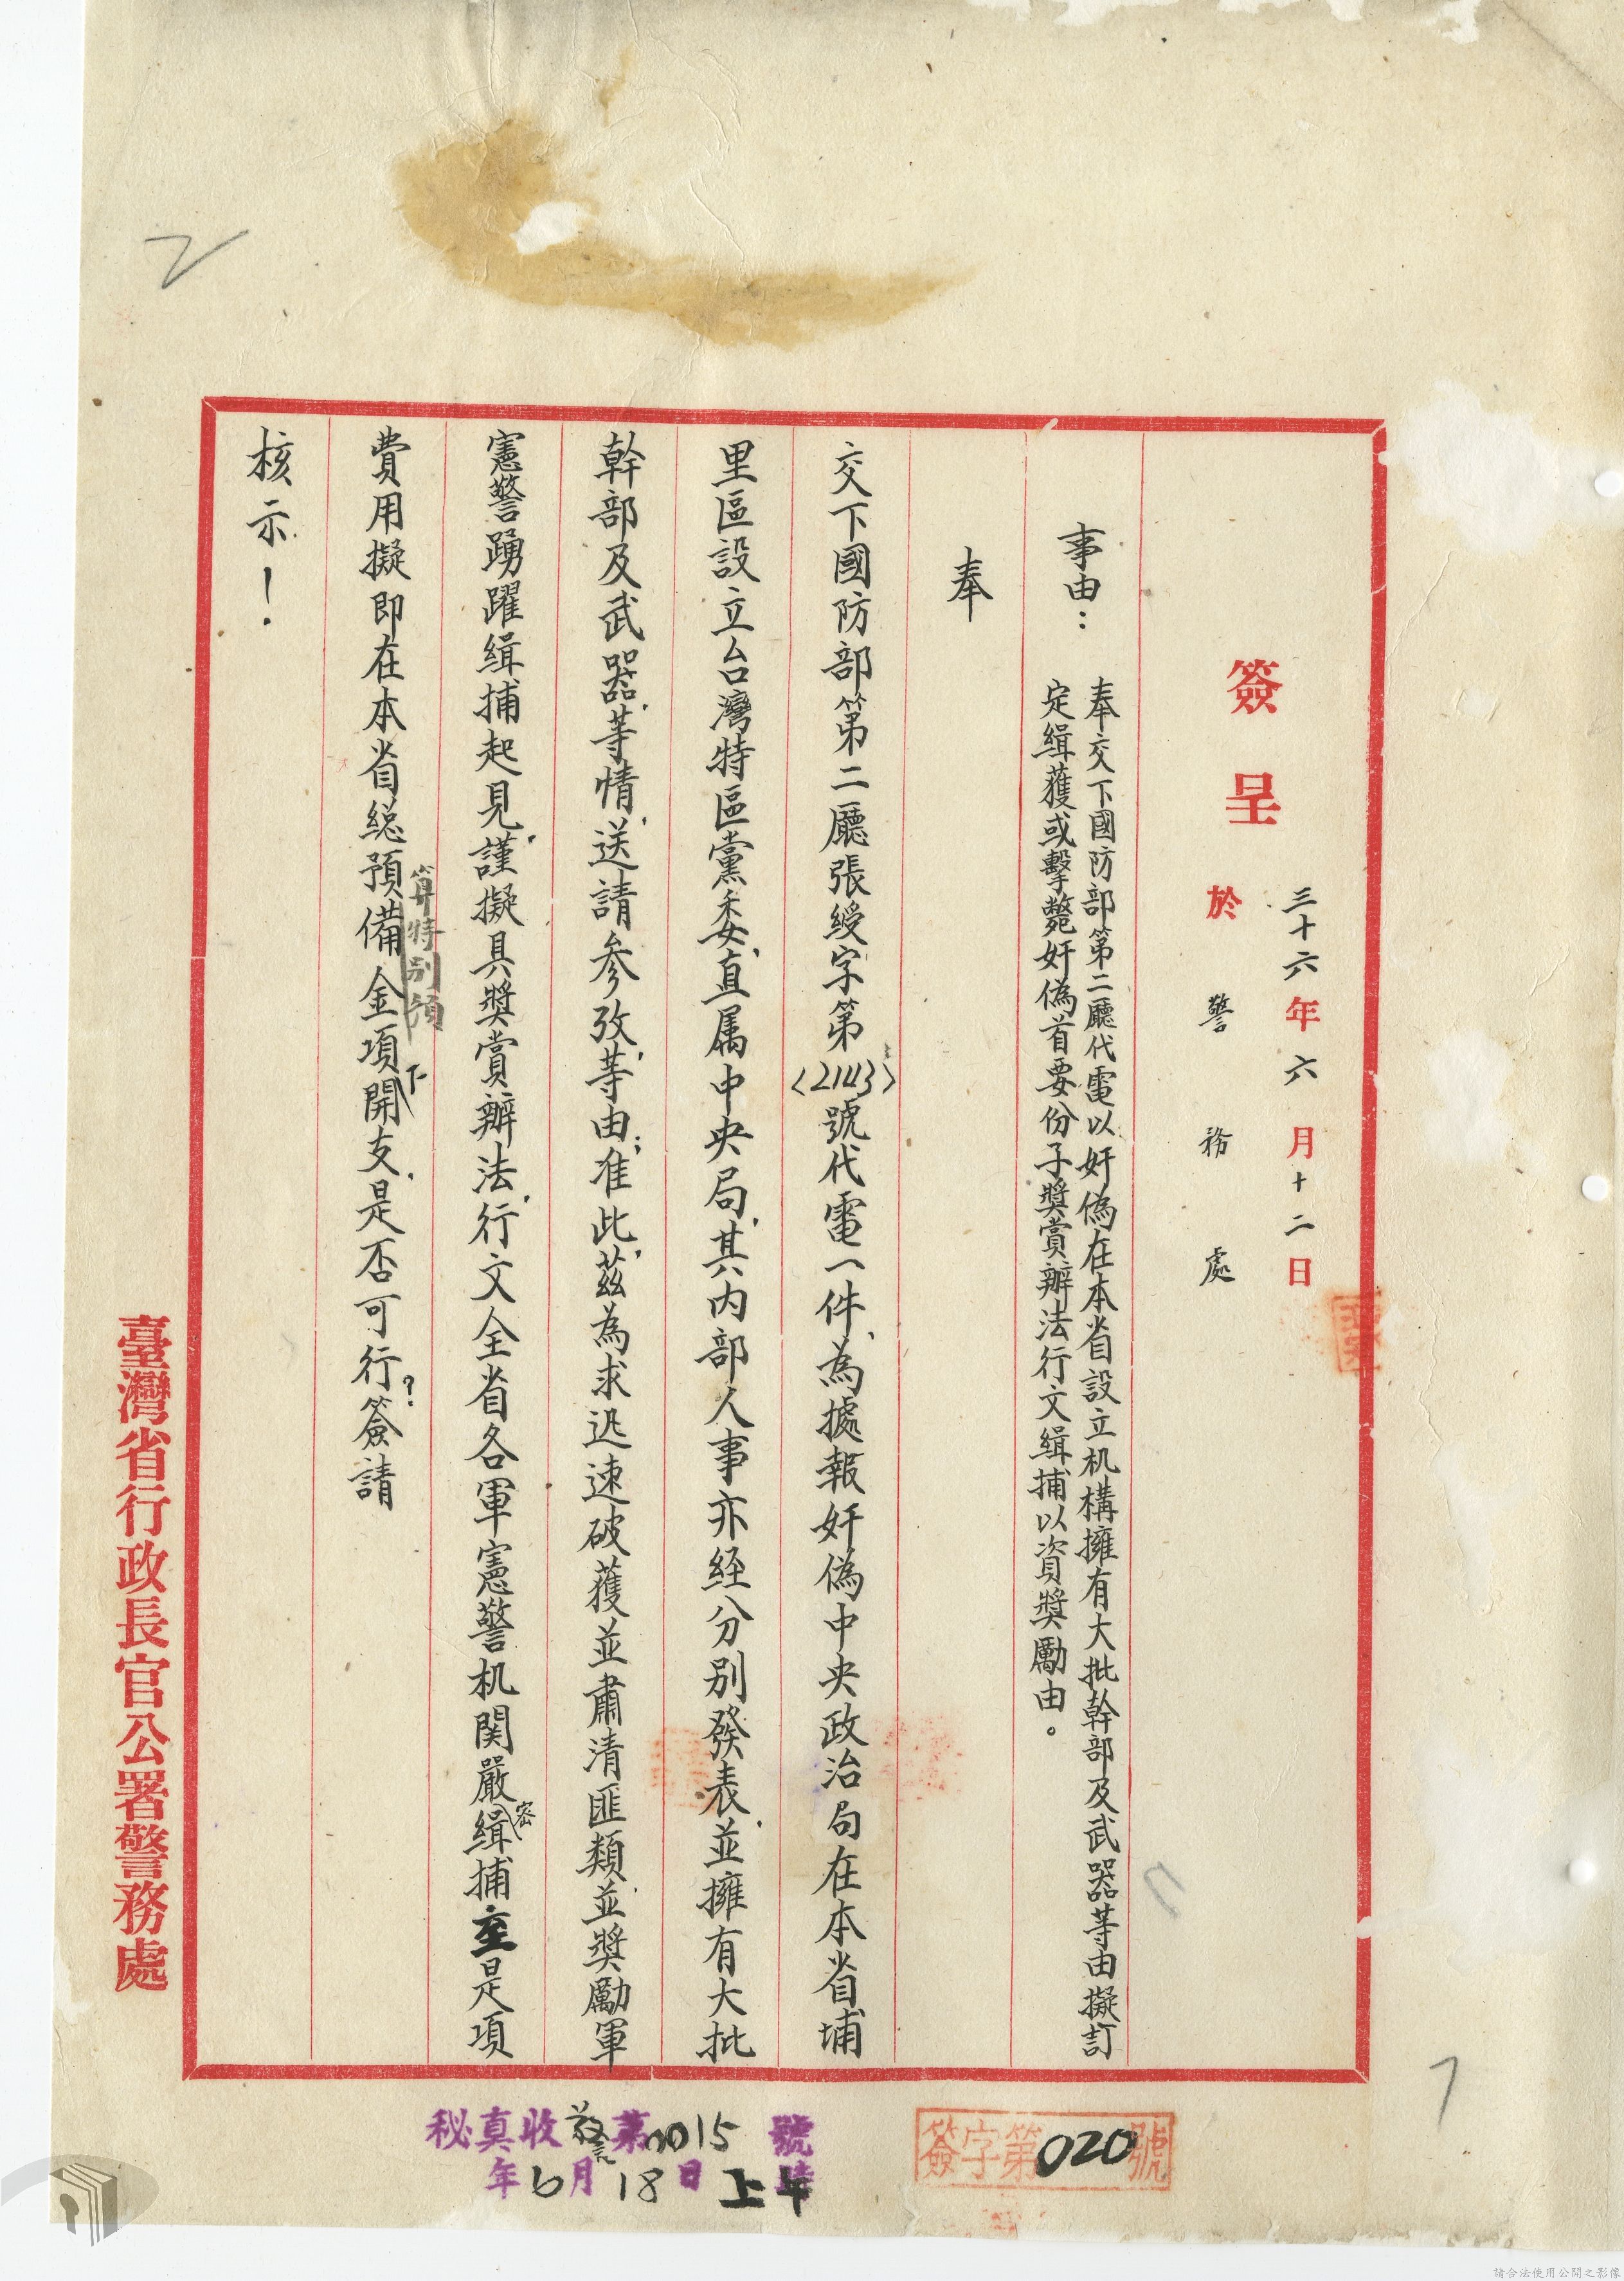 簽呈
三十六年六月十二日
於警務處
事由：
奉交下國防部第二廳代電以奸偽在本省設立机構擁有大批幹部及武器等由擬訂
定緝獲或擊斃奸偽首要份子獎賞辦法行文緝捕以資獎勵由。
奉
交下國防部第二廳張綬字第〈2143〉號代電一件、為據報奸偽中央政治局在本省埔
里區設立台灣特區黨委、直属中央局、其内部人事亦経分別發表、並擁有大批
幹部及武器等情、送請参攷等由；准此、茲為求迅速破獲並肅清匪類、並獎勵軍
憲警踴躍緝捕起見、謹擬具獎賞辦法、行文全省各軍憲警机関嚴密緝捕至是項
費用擬即在本省総預算特別預備金項下開支、是否可行？簽請
核示！
臺灣省行政長官公署警務處
簽字第020號
秘真收警第0015號
年6月18日上午時
2
7
請合法使用公開之影像